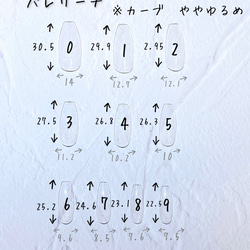 バレリーナ ※カーブ ややゆるめ
30.5 0 29.9 1 2.95 2
14 12.7 12.1
27.5 3 26.8 4 26.3 5
11.2 10.2 10
25.2 6 24.6 7 23.1 8 22.5 9
9.6 8.5 7.6 7.5